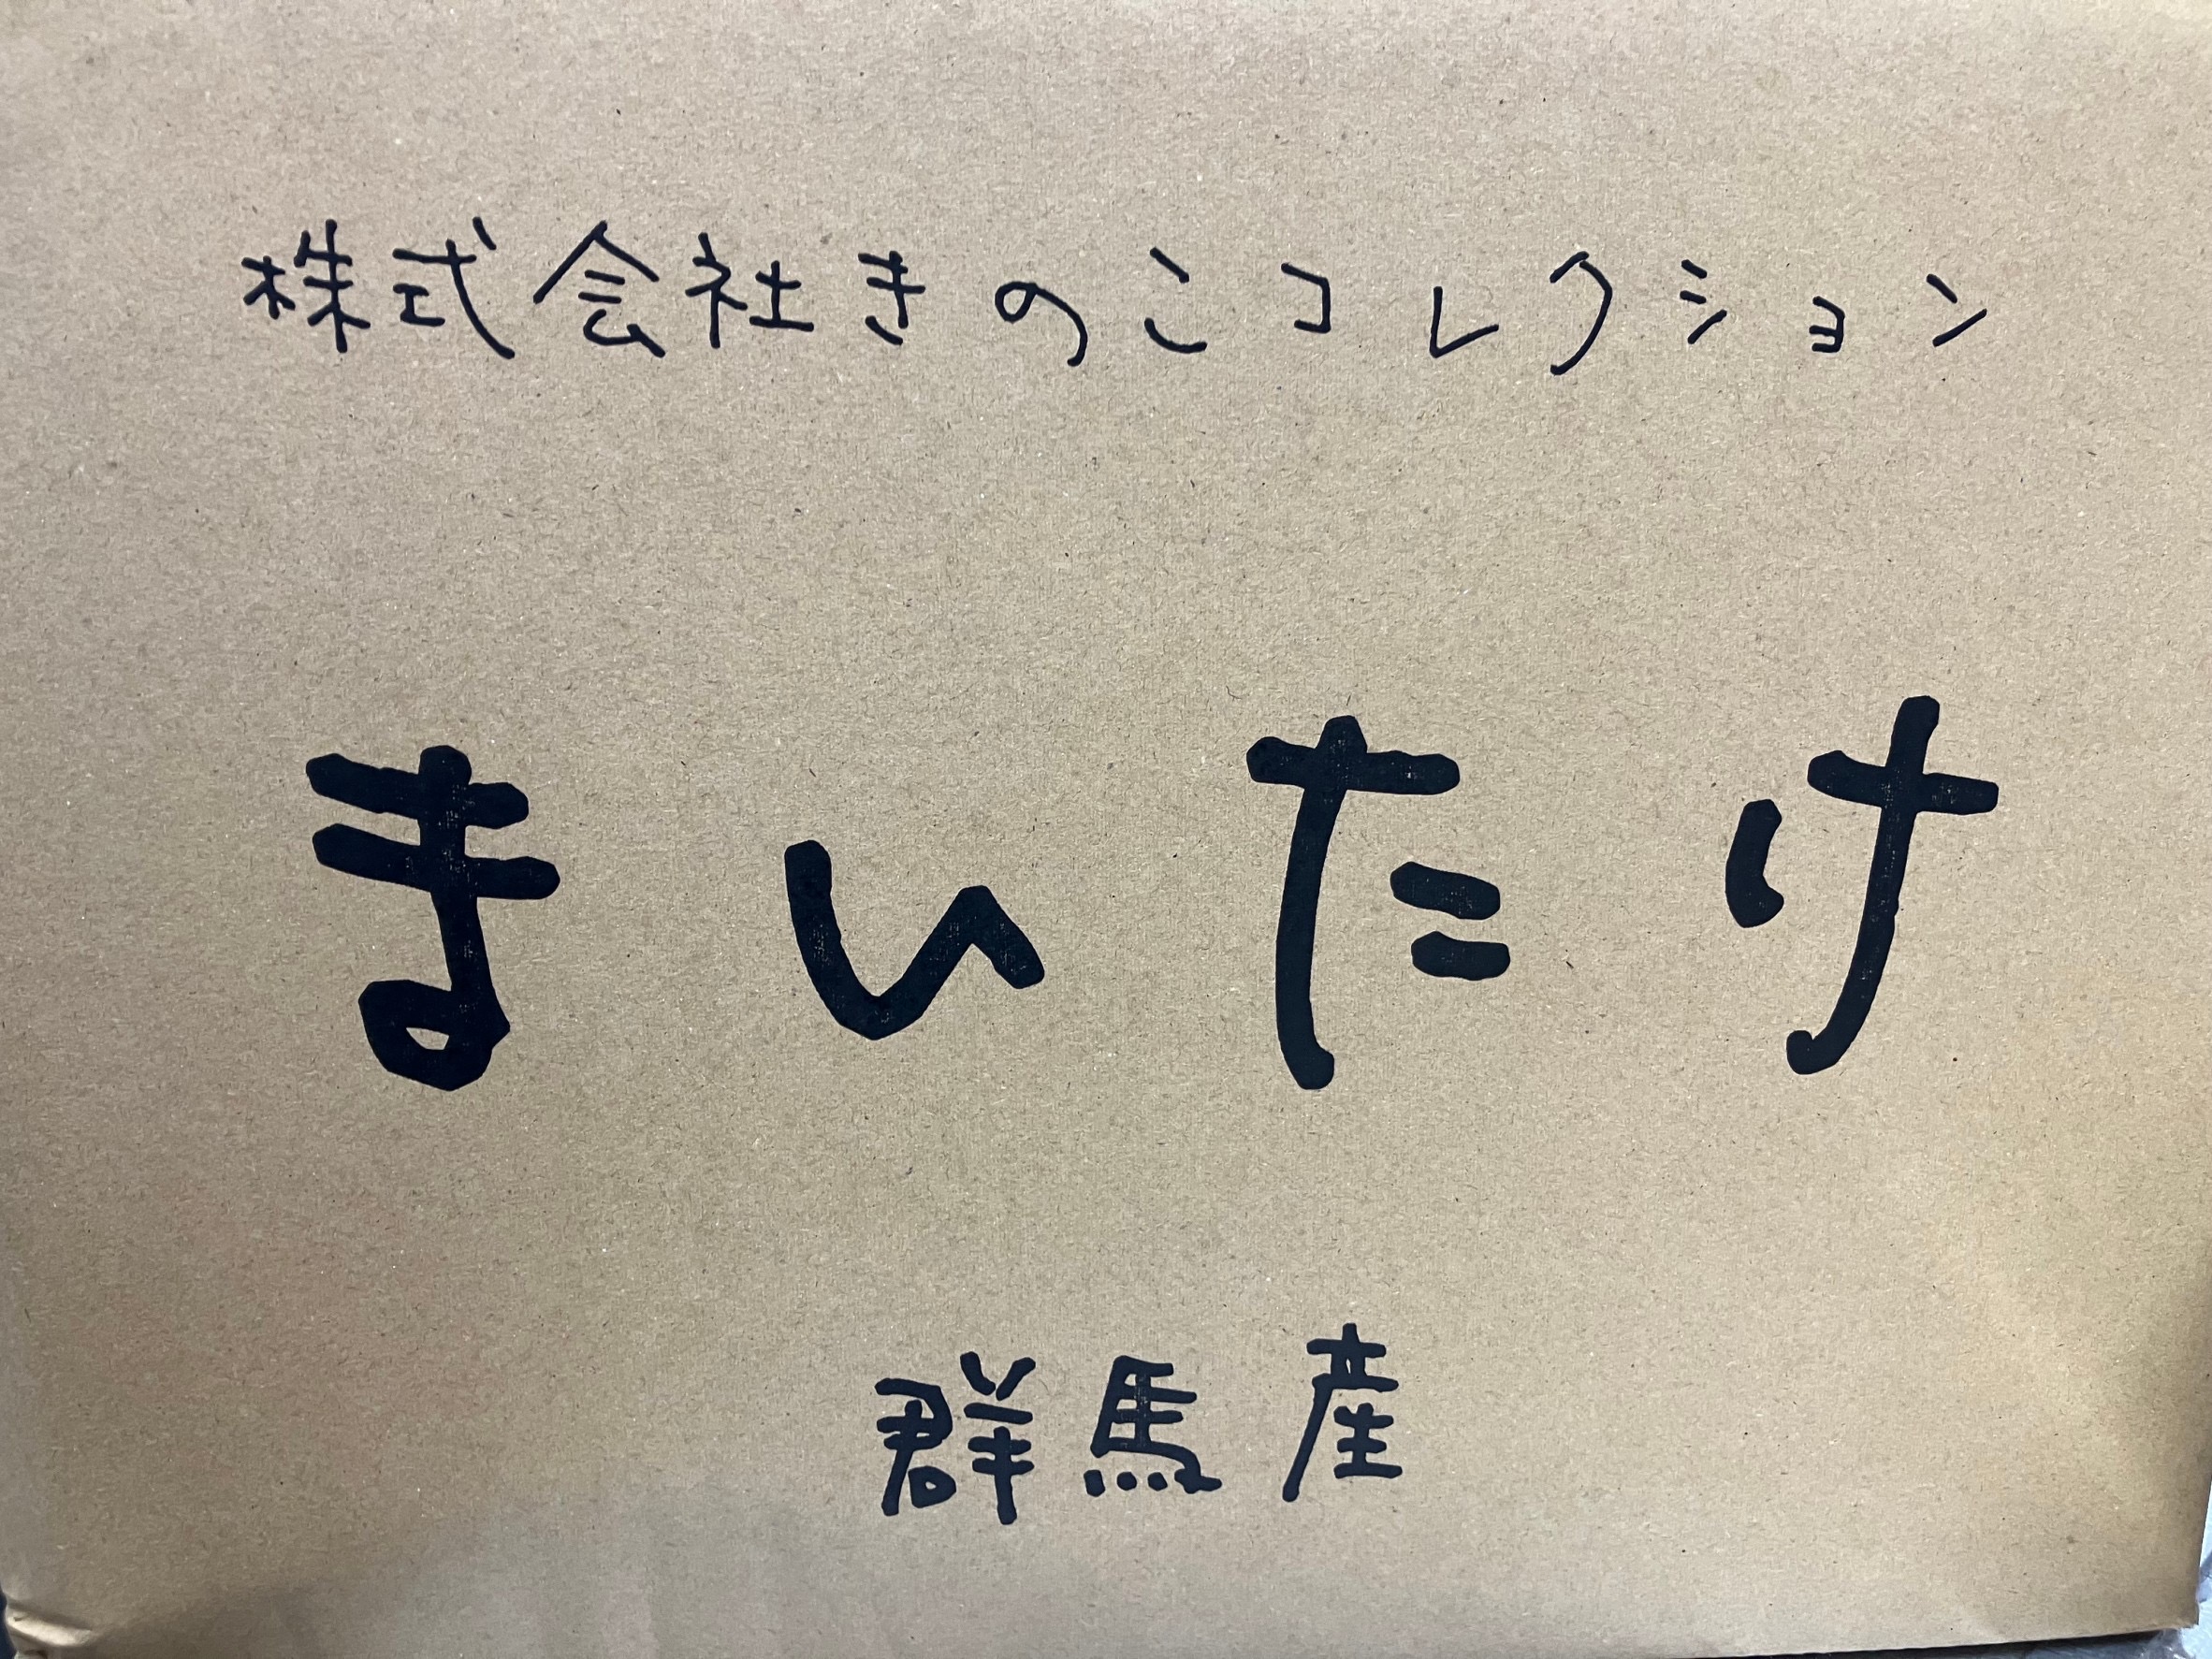 株式会社きのこコレクション
まいたけ
群馬産